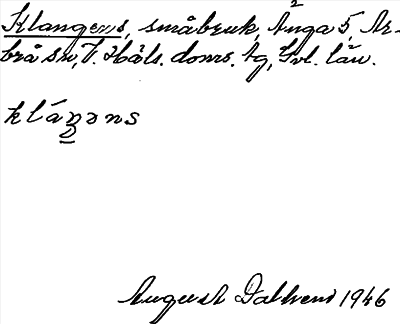 Klangens, småbruk, Änga 5, Ar-
brå sn, V. Häls. doms. tg, Gvl. län.
klåŋəns
August Dalkvist 1946